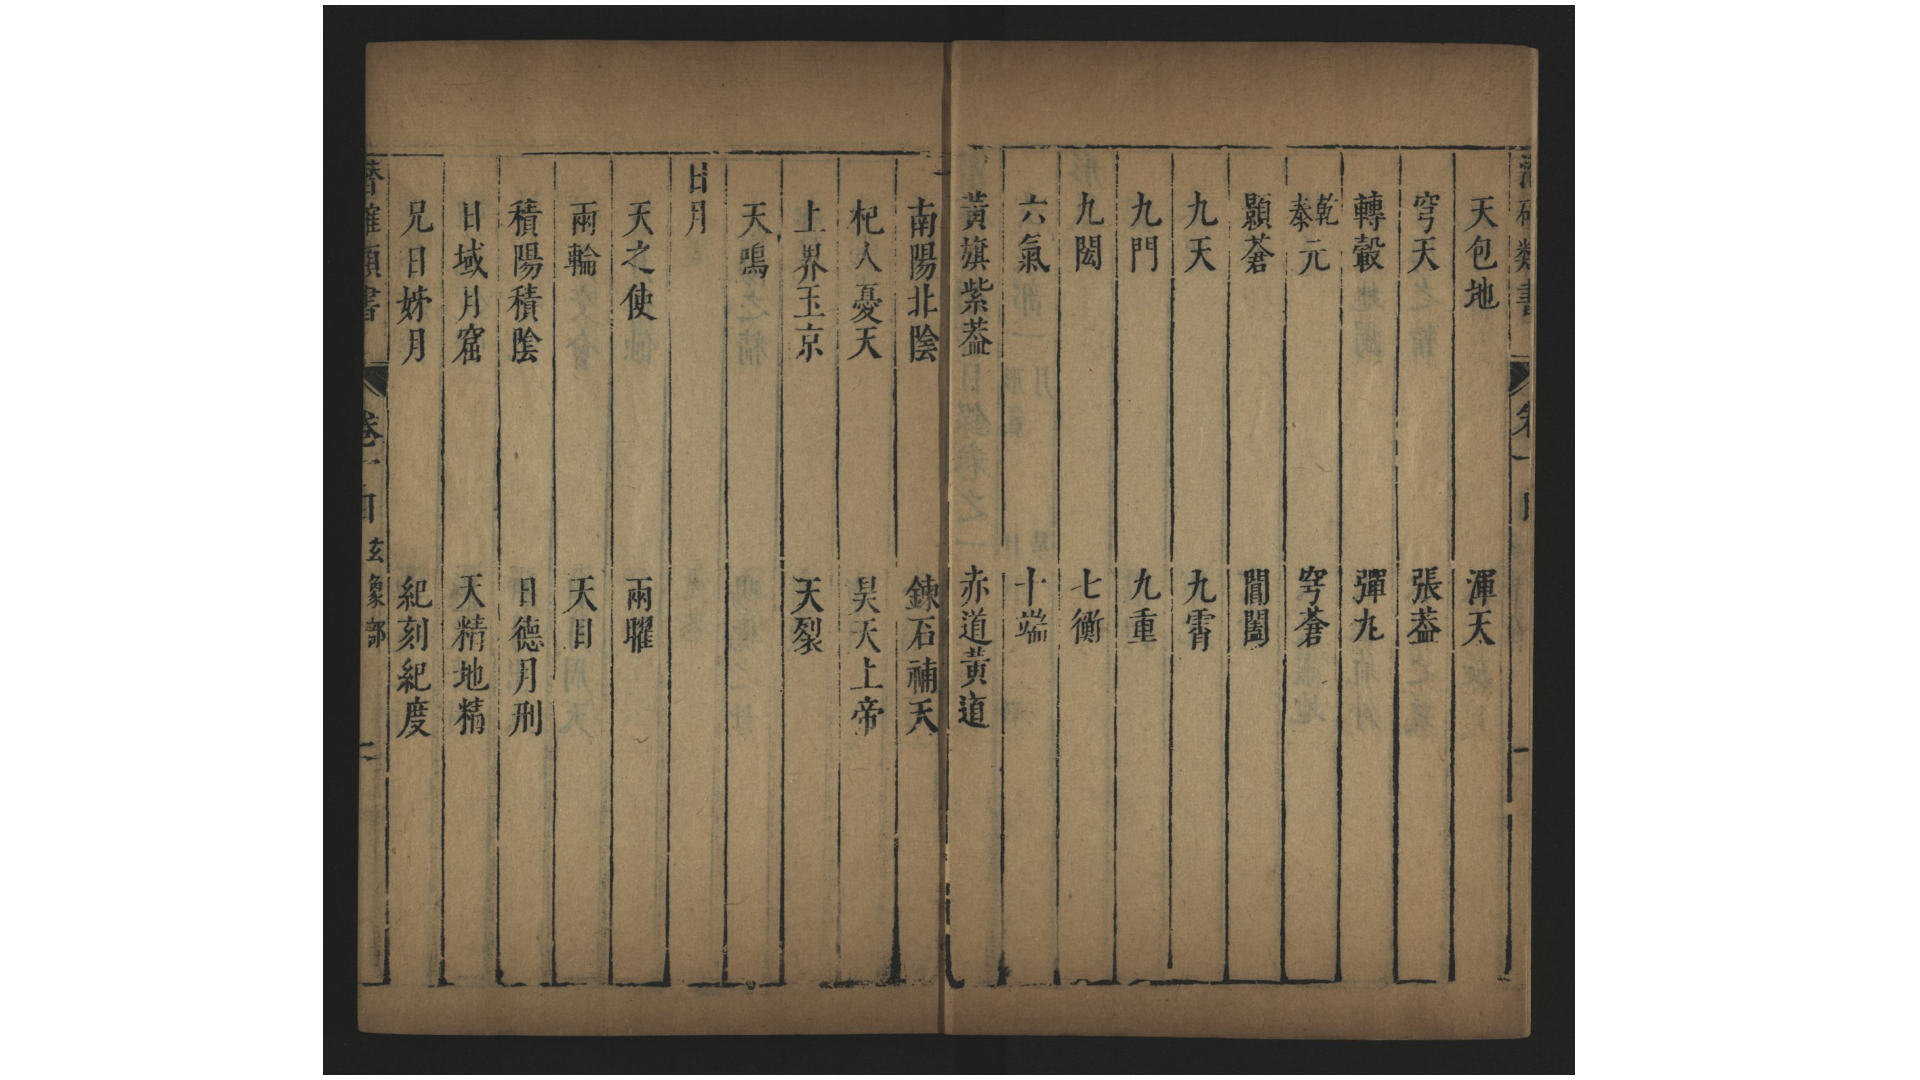 類書 卷一
天包地 渾天
穹天 張葢
轉轂 彈丸
乾泰元 穹蒼
顥蒼 閶闔
九天 九霄
九門 九重
九閡 七衡
六氣 十端
黃旗紫葢 赤道黃道
南陽北陰 鍊石補天
杞人憂天 昊天上帝
上界玉京 天裂
天鳴
日月
天之使 兩曜
兩輪 天目
積陽積陰 日德月刑
日域月窟 天精地精
兄日姊月 紀刻紀度
潛確類書 卷一目 玄象部 二